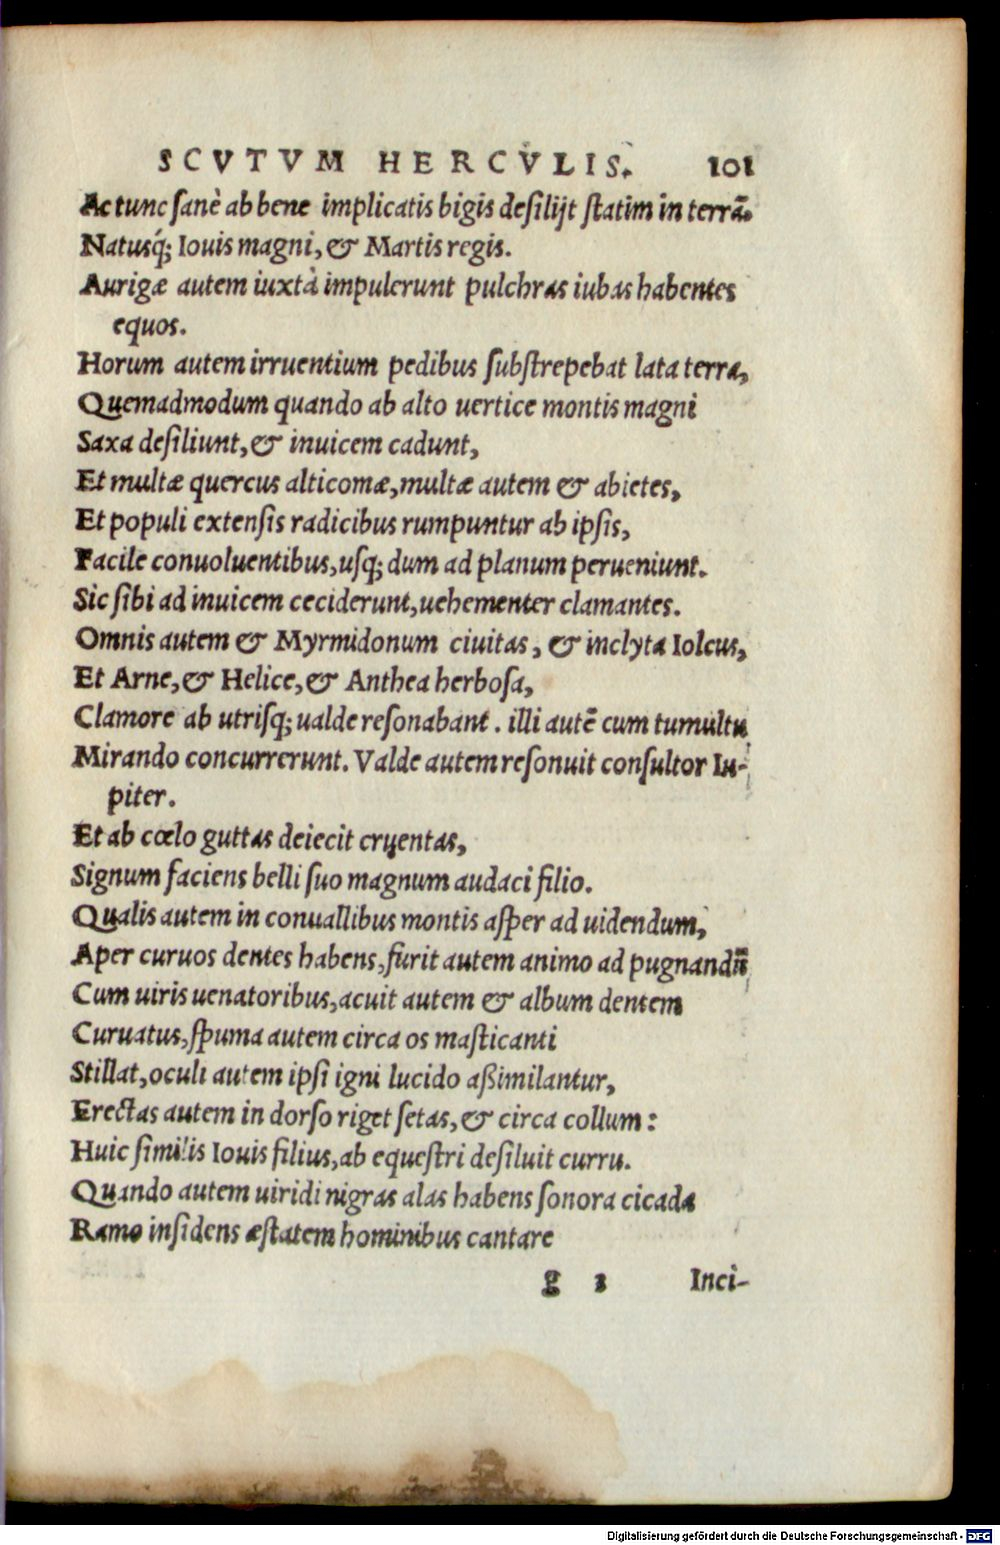 SCVTVM HERCVLIS. 101
Ac tunc sanè ab bene implicatis bigis desilijt statim in terrā.
Natusq́; Iouis magni, & Martis regis.
Aurigæ autem iuxtà impulerunt pulchras iubas habentes
equos.
Horum autem irruentium pedibus substrepebat lata terra,
Quemadmodum quando ab alto uertice montis magni
Saxa desiliunt, & inuicem cadunt,
Et multæ quercus alticomæ, multæ autem & abietes,
Et populi extensis radicibus rumpuntur ab ipsis,
Facile conuoluentibus, usq; dum ad planum perueniunt.
Sic sibi ad inuicem ceciderunt, uehementer clamantes.
Omnis autem & Myrmidonum ciuitas, & inclyta Iolcus,
Et Arne, & Helice, & Anthea herbosa,
Clamore ab utrisq; ualde resonabant. illi autē cum tumultu
Mirando concurrerunt. Valde autem resonuit consultor Iu-
piter.
Et ab cœlo guttas deiecit cruentas,
Signum faciens belli suo magnum audaci filio.
Qualis autem in conuallibus montis asper ad uidendum,
Aper curuos dentes habens, furit autem animo ad pugnandū
Cum uiris uenatoribus, acuit autem & album dentem
Curuatus, spuma autem circa os masticanti
Stillat, oculi autem ipsi igni lucido aßimilantur,
Erectas autem in dorso riget setas, & circa collum:
Huic similis Iouis filius, ab equestri desiluit curru.
Quando autem uiridi nigras alas habens sonora cicada
Ramo insidens æstatem hominibus cantare
g 3 Inci-
Digitalisierung gefördert durch die Deutsche Forschungsgemeinschaft - DFG